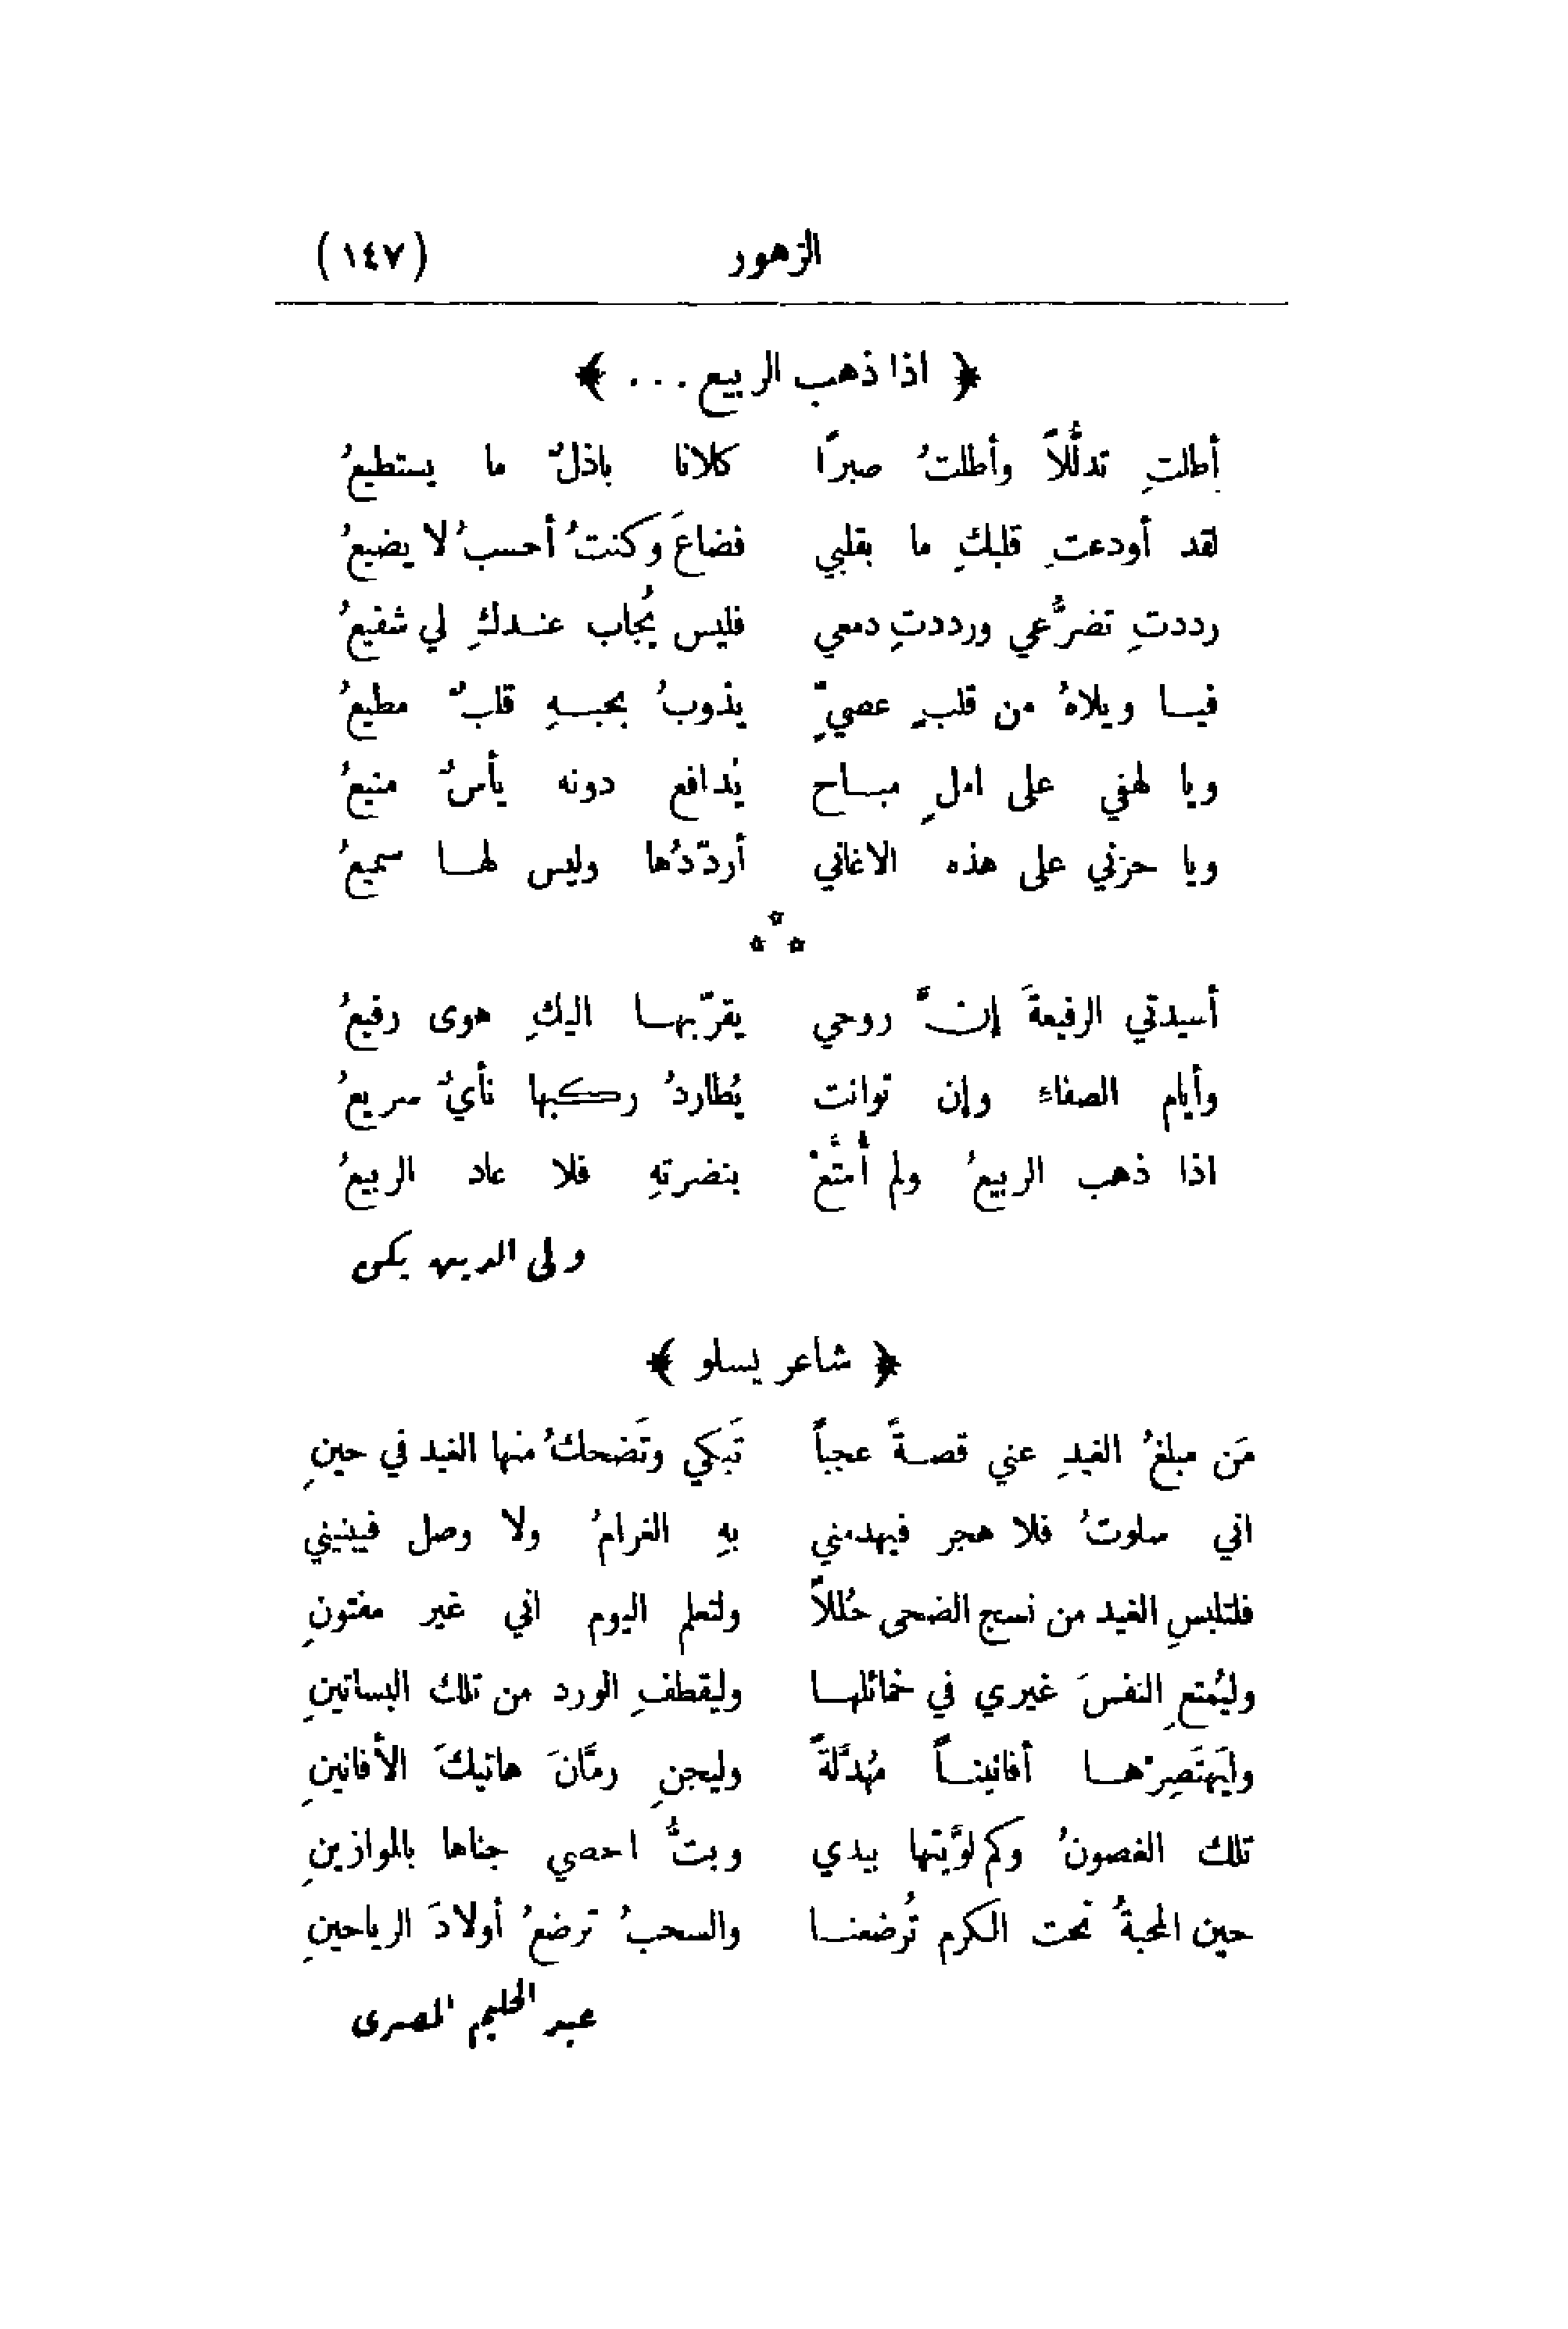 الزهور (١٤٧)
﴿ اذا ذهب الربيع ... ﴾
أطلتِ تدلُّلاً وأطلتُ صبرًا كلانا باذلٌ ما يستطيعُ
لقد أودعتِ قلبكِ ما بقلبي فضاعَ وكنتُ أحسبُ لا يضيعُ
رددتِ تضرُّعي ورددتِ دمعي فليس يُجاب عندكِ لي شفيعُ
فيا ويلاهُ من قلبٍ عصيٍّ يذوبُ بحبهِ قلبٌ مطيعُ
ويا لهفي على املٍ مباح يُدافع دونه يأسٌ منيعُ
ويا حزني على هذه الاغاني أردّدُها وليس لها سميعُ
***
أسيدتي الرفيعةَ إنَّ روحي يقرّبها اليكِ هوى رفيعُ
وأيام الصفاء وإن توانت يُطاردُ ركبها نأيٌ سريعُ
اذا ذهب الربيعُ ولم أُمتَّعْ بنضرتهِ فلا عاد الربيعُ
ولي الدين يكن
﴿ شاعر يسلو ﴾
مَن مبلغُ الغيدِ عني قصةً عجباً تَبكي وتَضحكُ منها الغيد في حينِ
اني سلوتُ فلا هجر فيهدمني بهِ الغرامُ ولا وصل فيبنيني
فلتلبسِ الغيد من نسج الضحى حُللاً ولتعلم اليوم اني غير مفتونِ
وليُمتعِ النفسَ غيري في خمائلها وليقطفِ الورد من تلك البساتينِ
وليَهتَصِرْها أفانيناً مُهدَّلةً وليجنِ رمَّانَ هاتيكَ الأفانينِ
تلك الغصونُ وكم لوَّيتها بيدي وبتُّ احصي جناها بالموازينِ
حين المحبةُ تحت الكرم تُرضعنا والسحبُ ترضعُ أولادَ الرياحينِ
عبد الحليم المصري